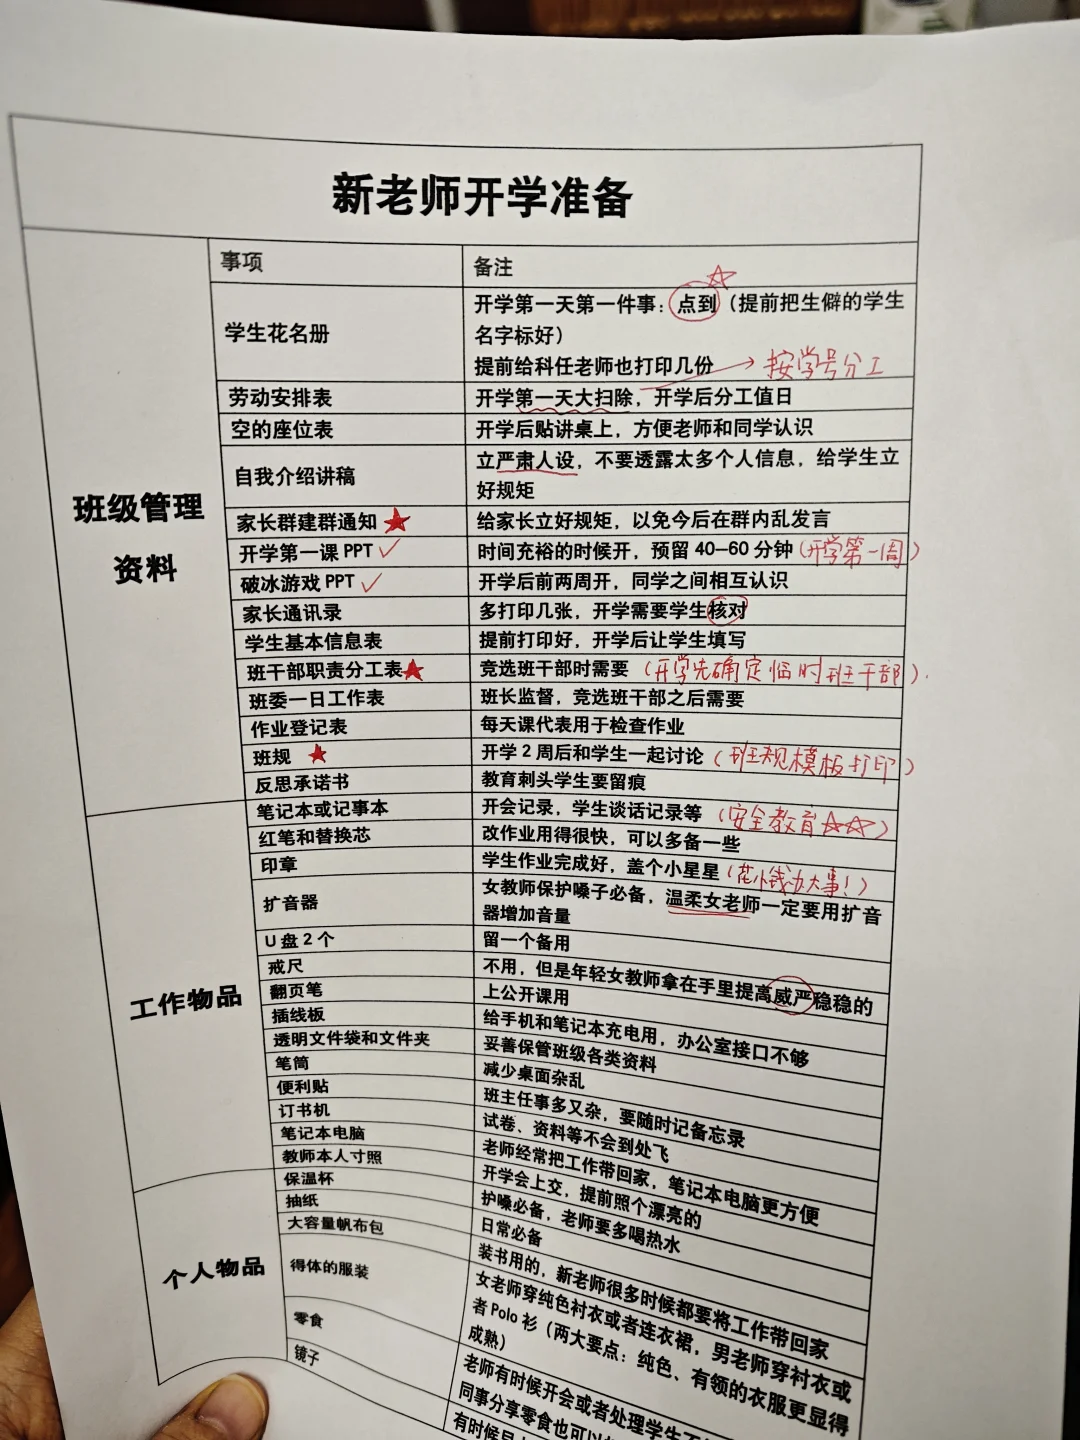 新老师开学准备
班级管理
资料
事项
备注
学生花名册
开学第一天第一件事：点到（提前把生僻的学生
名字标好）
提前给科任老师也打印几份
按学号分工
劳动安排表
开学第一天大扫除，开学后分工值日
空的座位表
开学后贴讲桌上，方便老师和同学认识
自我介绍讲稿
立严肃人设，不要透露太多个人信息，给学生立
好规矩
家长群建群通知 ★
给家长立好规矩，以免今后在群内乱发言
开学第一课 PPT ✓
时间充裕的时候开，预留 40—60 分钟（开学第一周）
破冰游戏 PPT ✓
开学后前两周开，同学之间相互认识
家长通讯录
多打印几张，开学需要学生核对
学生基本信息表
提前打印好，开学后让学生填写
班干部职责分工表★
竞选班干部时需要（开学先确定临时班干部）.
班委一日工作表
班长监督，竞选班干部之后需要
作业登记表
每天课代表用于检查作业
班规 ★
开学 2 周后和学生一起讨论（班规模板打印）
反思承诺书
教育刺头学生要留痕
工作物品
笔记本或记事本
开会记录，学生谈话记录等（安全教育☆☆）
红笔和替换芯
改作业用得很快，可以多备一些
印章
学生作业完成好，盖个小星星（花小钱办大事！）
扩音器
女教师保护嗓子必备，温柔女老师一定要用扩音
器增加音量
U 盘 2 个
留一个备用
戒尺
不用，但是年轻女教师拿在手里提高威严稳稳的
翻页笔
上公开课用
插线板
给手机和笔记本充电用，办公室接口不够
透明文件袋和文件夹
妥善保管班级各类资料
笔筒
减少桌面杂乱
便利贴
班主任事多又杂，要随时记备忘录
订书机
试卷、资料等不会到处飞
笔记本电脑
老师经常把工作带回家，笔记本电脑更方便
教师本人寸照
开学会上交，提前照个漂亮的
个人物品
保温杯
护嗓必备，老师要多喝热水
抽纸
日常必备
大容量帆布包
装书用的，新老师很多时候都要将工作带回家
得体的服装
女老师穿纯色衬衣或者连衣裙，男老师穿衬衣或
者 Polo 衫（两大要点：纯色、有领的衣服更显得
成熟）
零食
老师有时候开会或者处理学生
同事分享零食也可以
镜子
有时候